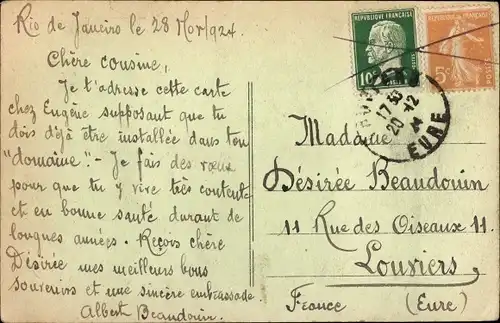 Rio de Janeiro le 28 Nov/924.
Chère cousine,
Je t'adresse cette carte
chez Eugène supposant que tu
dois déjà être installée dans ton
"domaine". - Je fais des vœux
pour que tu y vive très contente
et en bonne santé durant de
longues années. Reçois chère
Désirée mes meilleurs bons
souvenirs et une sincère embrassade.
Albert Beaudouin.
REPUBLIQUE FRANÇAISE
10c
REPUBLIQUE FRANÇAISE
5c
POSTES
17 30
20 -12
24
EURE
Madame
Désirée Beaudouin
11 Rue des Oiseaux 11.
Louviers
France (Eure)